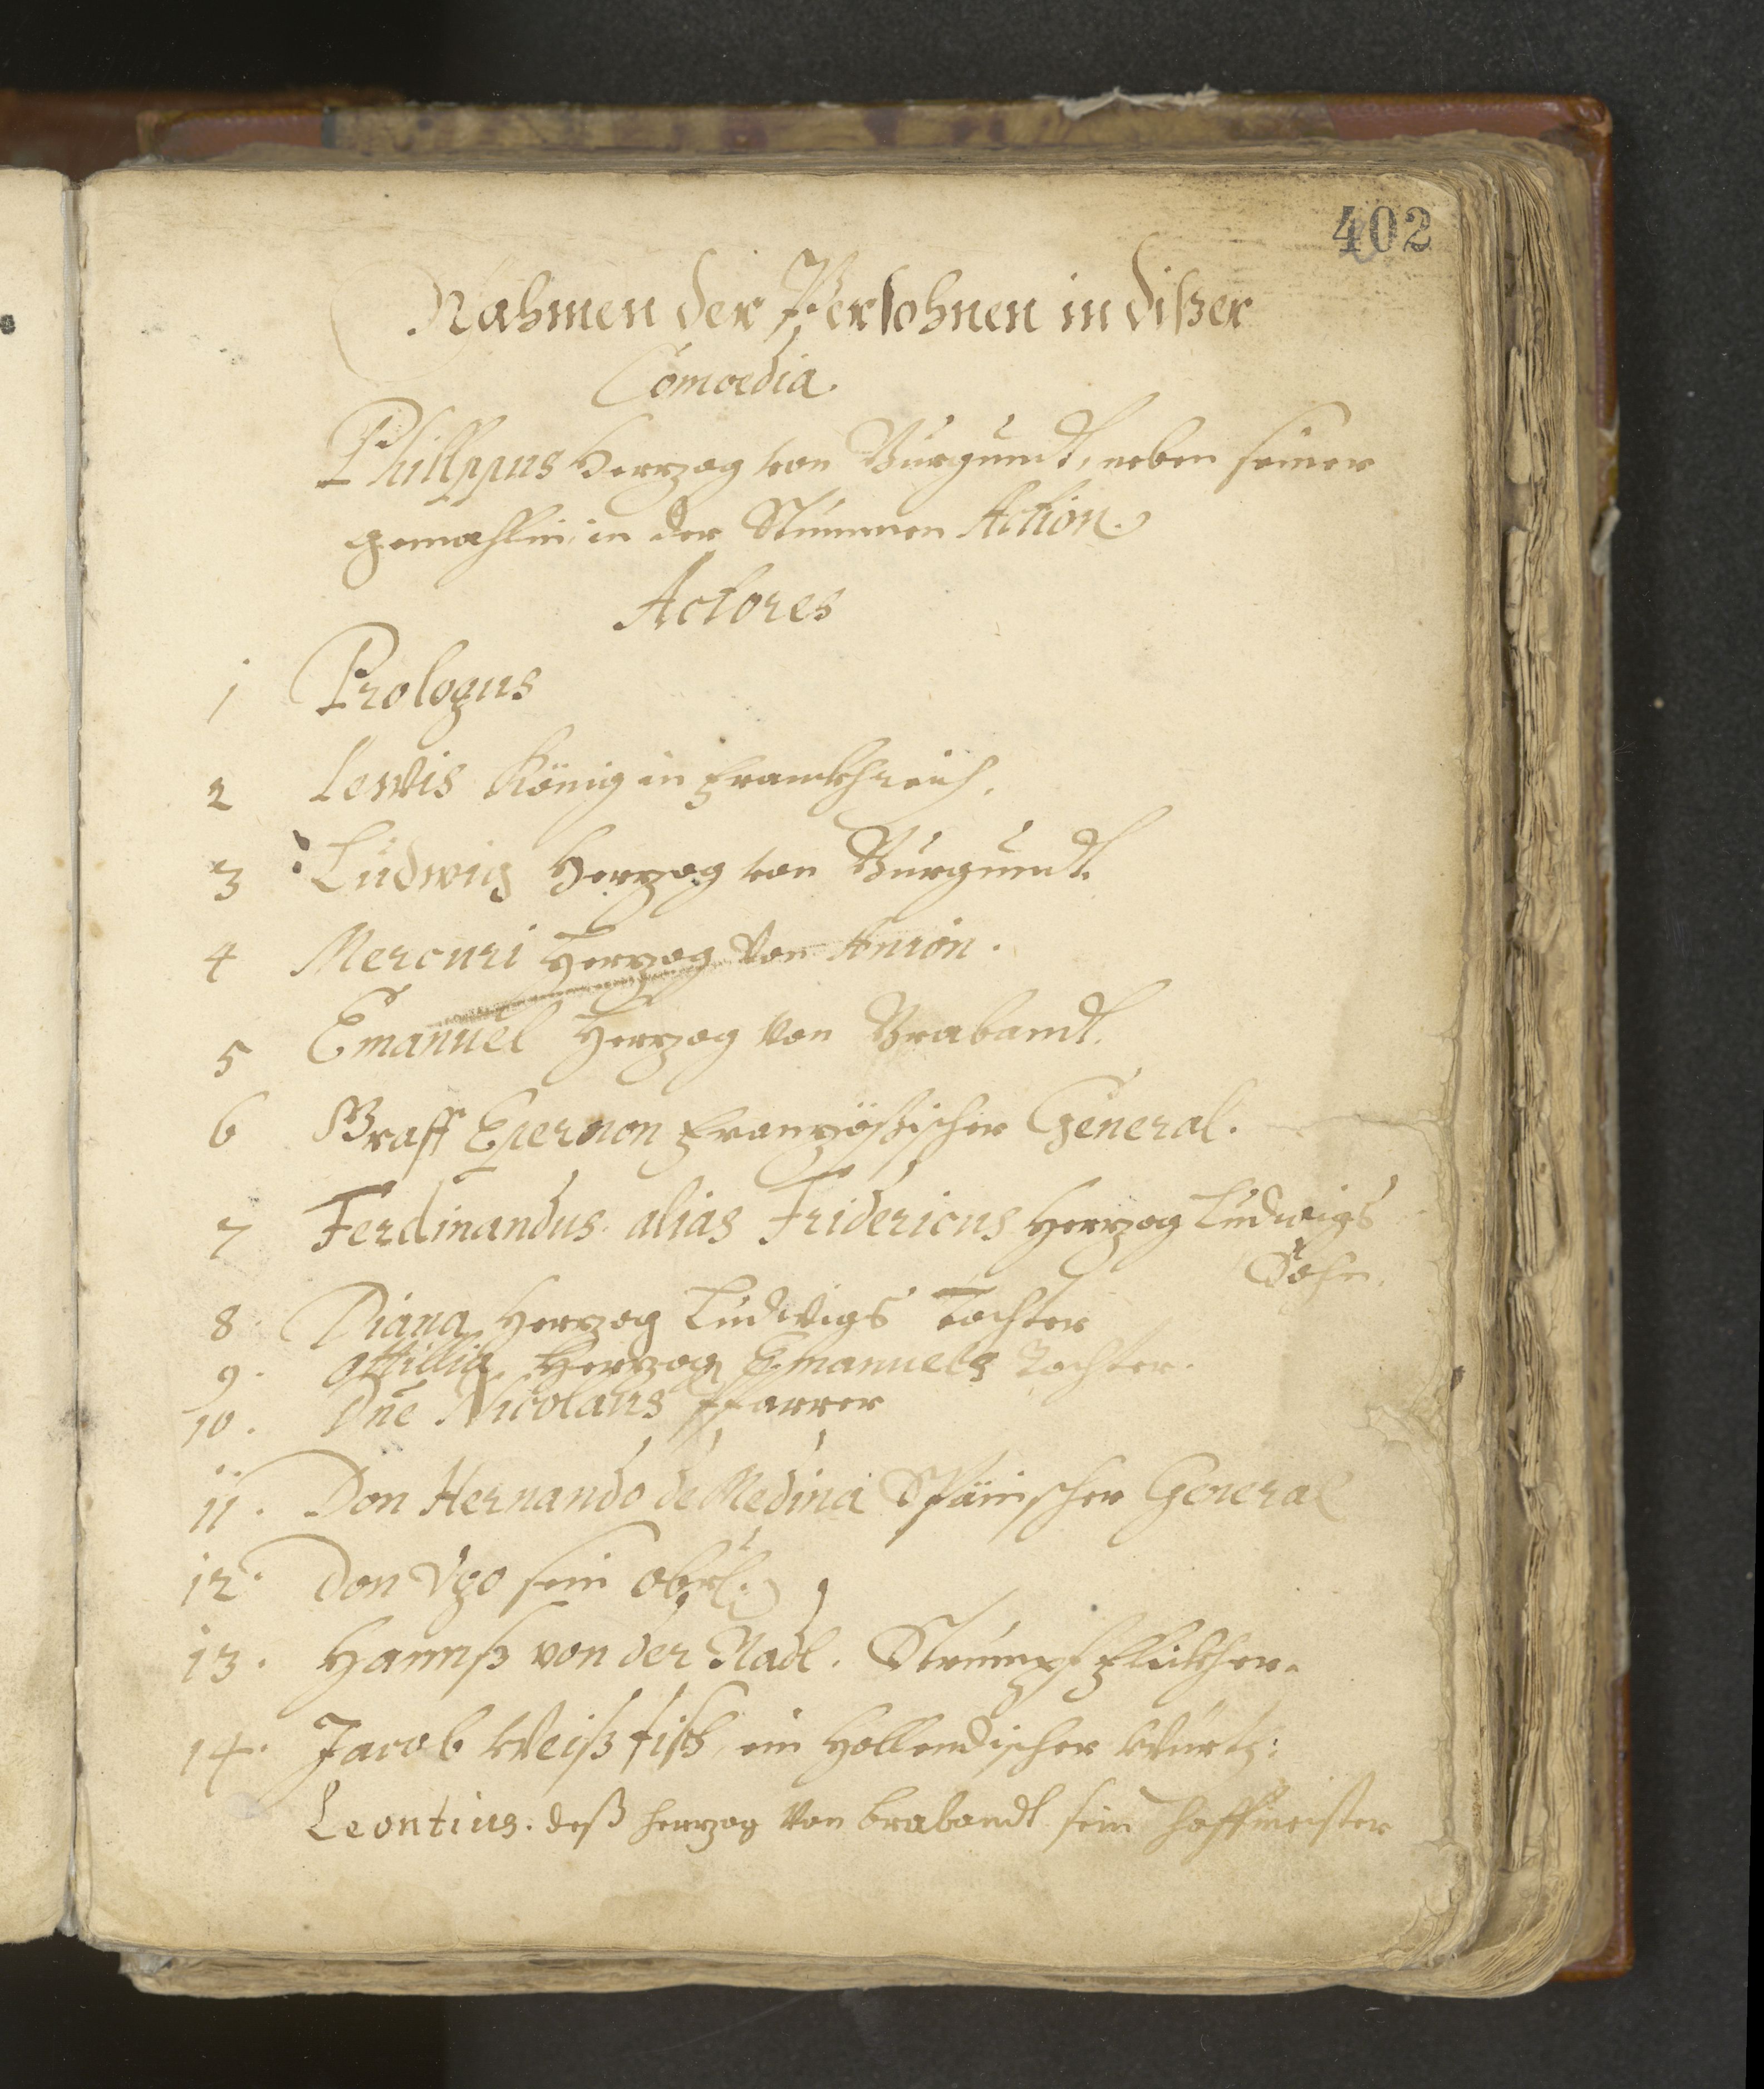 402
Nahmen der Persohnen in dißer
Comoedia.
Philippus Herzog von Burgundt, neben seiner
gemahlin, in der Stummen Action.
Actores
1 Prologus
2 Lewis König in Franckhreich.
3 Ludwig Herzog von Burgundt.
4 Mercuri Herzog von
5 Emanuel Herzog von Brabandt.
6 Graff Epernon Französischer General.
7 Ferdinandus alias Fridericus Herzog Ludwigs
Sohn.
8. Diana Herzog Ludwigs Tochter
9. Ottillia Herzog Emanuels Tochter.
10. Dne Nicolaus Pfarrer
11. Don Hernando de Medina Spänischer General
12. Don Vgo sein obrl.
13. Hannß von der Nadl. Strumpf Flickher.
14. Jacob Weißfisch, ein Hollendischer Würtz:
Leontius. deß herzog von brabandt sein hoffmeister